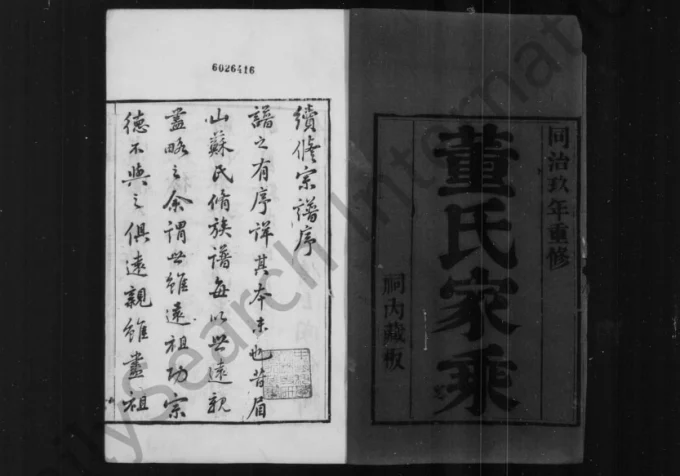 同治玖年重修
董氏家乘
祠內藏板
6026416
續修宗譜序
譜之有序詳其本末也昔眉
山蘇氏脩族譜每以世遠親
盡略之余謂世雖遠祖功宗
德不與之俱遠親雖盡祖
FamilySearch International